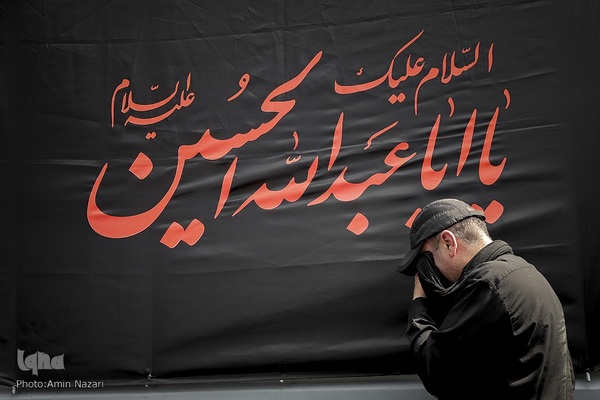 السّلام علیک
یا ابا عبدالله الحسین
علیه السّلام
iqna
Photo:Amin Nazari